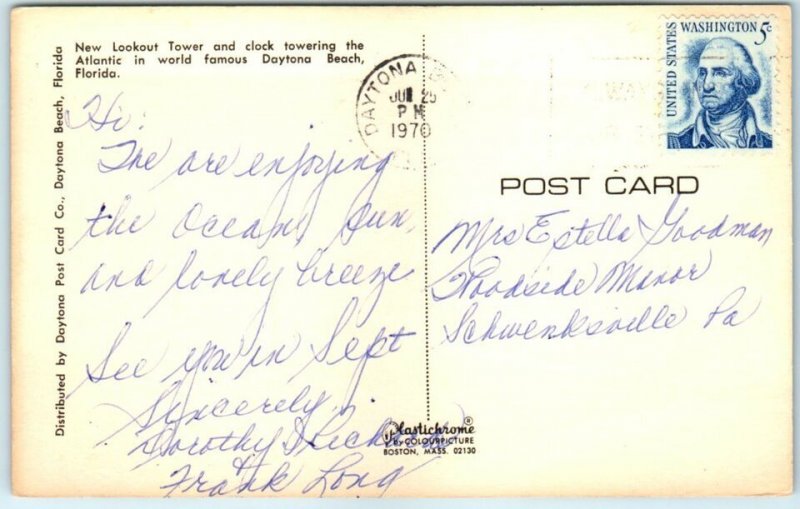 New Lookout Tower and clock towering the
Atlantic in world famous Daytona Beach,
Florida.
Distributed by Daytona Post Card Co., Daytona Beach, Florida
Hi:
The are enjoying
the Ocean, Sun,
and lovely breeze
See you in Sept
Sincerely,
Dorothy
&
Frank Long
DAYTONA
25
PM
1970
UNITED STATES
WASHINGTON 5c
POST CARD
Mrs Estella Goodman
Woodside Manor
Schwenksville Pa
Plastichrome ®
by COLOURPICTURE
BOSTON, MASS. 02130